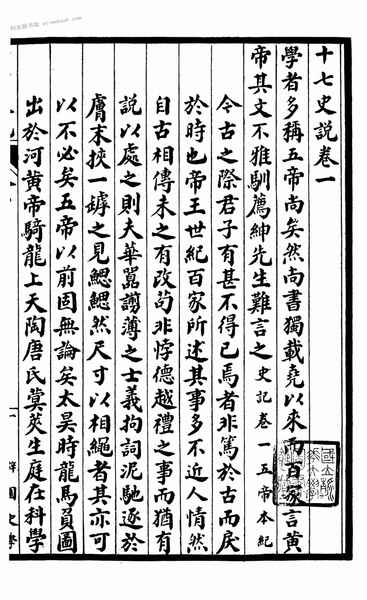 十七史説卷一
學者多稱五帝尚矣然尚書獨載堯以來而百家言黄
帝其文不雅馴薦紳先生難言之史記卷一五帝本紀
今古之際君子有甚不得已焉者非篤於古而戾
於時也帝王世紀百家所述其事多不近人情然
自古相傳未之有改苟非悖德越禮之事而猶有
說以處之則夫華囂謭薄之士義拘詞泥馳逐於
膚末挾一罅之見鰓鰓然尺寸以相繩者其亦可
以不必矣五帝以前固無論矣太昊時龍馬負圖
出於河黄帝騎龍上天陶唐氏蓂莢生庭在科學